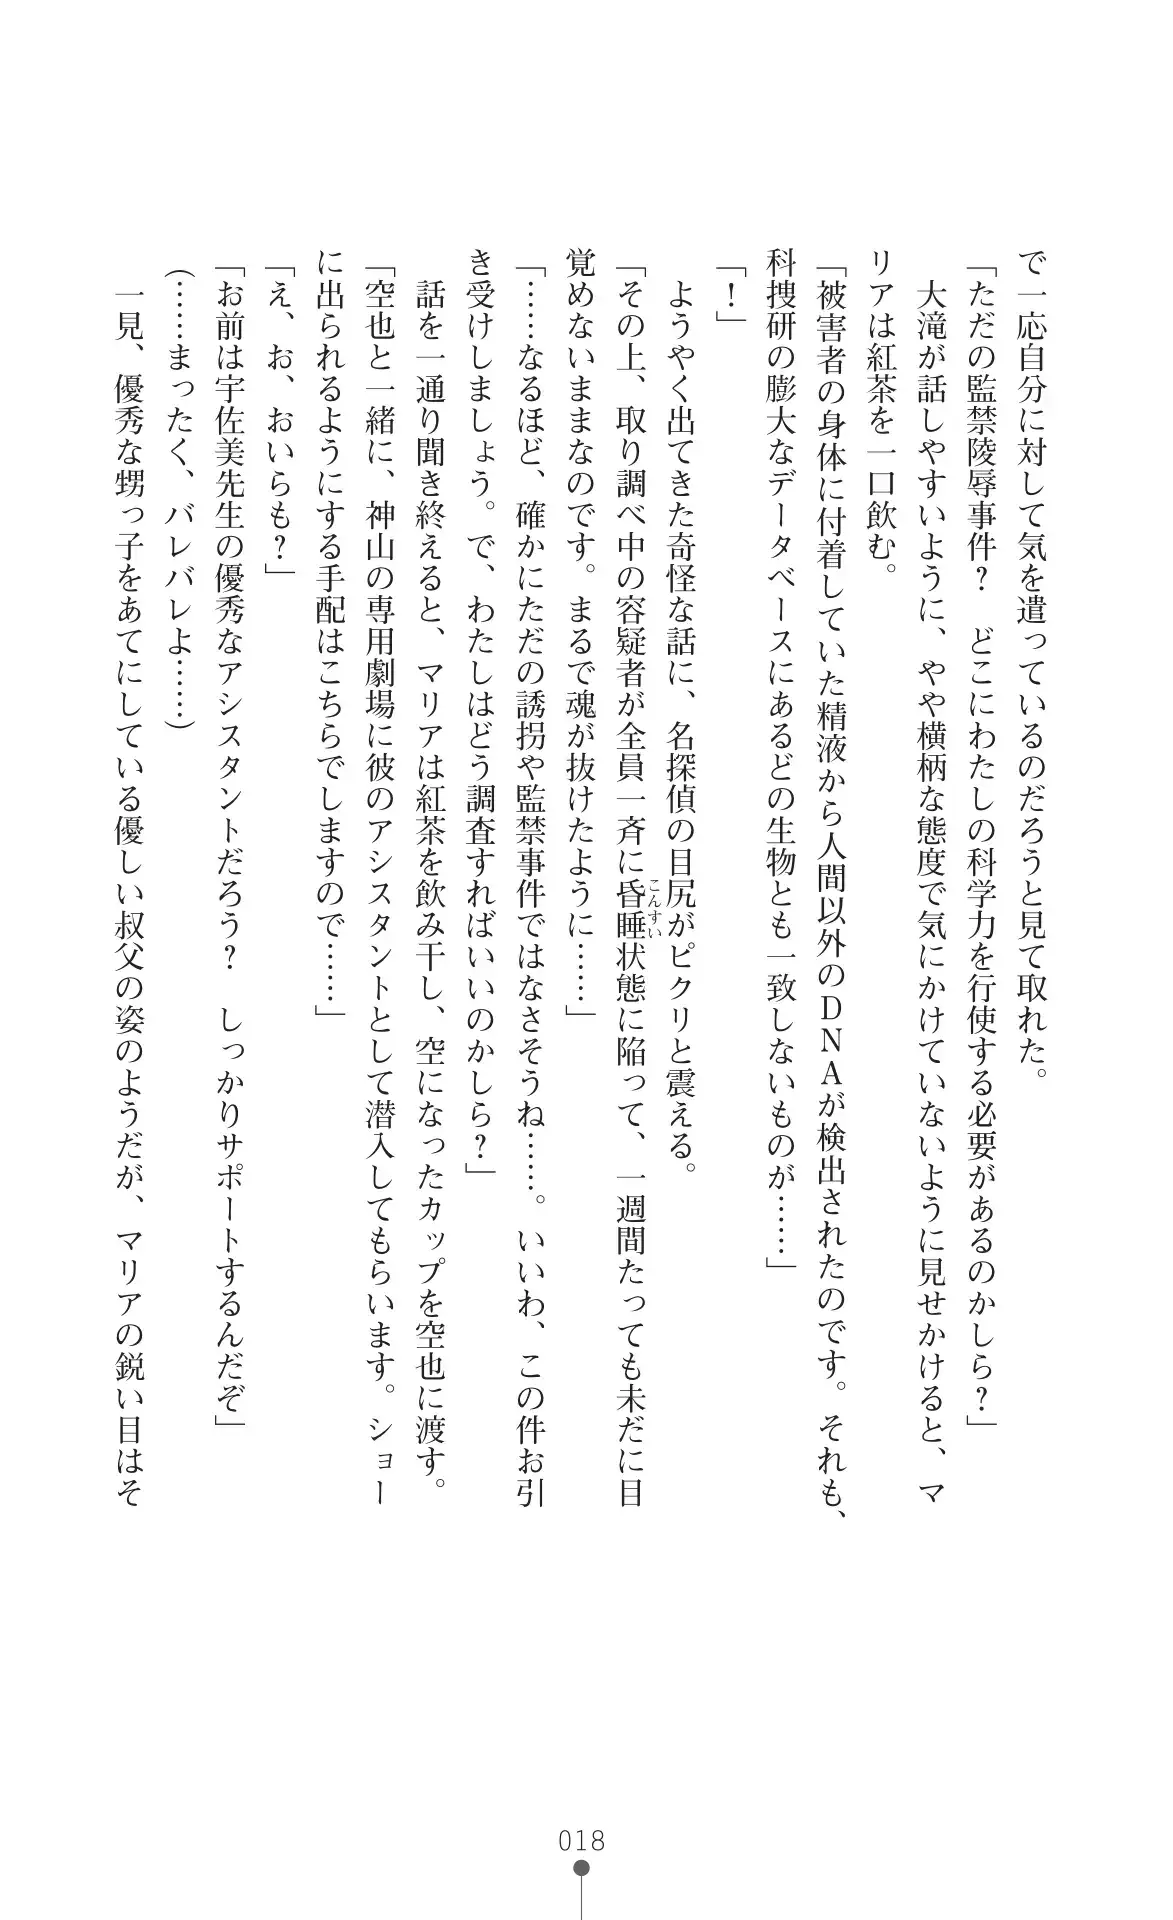 で一応自分に対して気を遣っているのだろうと見て取れた。
「ただの監禁陵辱事件？　どこにわたしの科学力を行使する必要があるのかしら？」
　大滝が話しやすいように、やや横柄な態度で気にかけていないように見せかけると、マ
リアは紅茶を一口飲む。
「被害者の身体に付着していた精液から人間以外のＤＮＡが検出されたのです。それも、
科捜研の膨大なデータベースにあるどの生物とも一致しないものが……」
「！」
　ようやく出てきた奇怪な話に、名探偵の目尻がピクリと震える。
「その上、取り調べ中の容疑者が全員一斉に昏睡状態に陥って、一週間たっても未だに目
こんすい
覚めないままなのです。まるで魂が抜けたように……」
「……なるほど、確かにただの誘拐や監禁事件ではなさそうね……。いいわ、この件お引
き受けしましょう。で、わたしはどう調査すればいいのかしら？」
　話を一通り聞き終えると、マリアは紅茶を飲み干し、空になったカップを空也に渡す。
「空也と一緒に、神山の専用劇場に彼のアシスタントとして潜入してもらいます。ショー
に出られるようにする手配はこちらでしますので……」
「え、お、おいらも？」
「お前は宇佐美先生の優秀なアシスタントだろう？　しっかりサポートするんだぞ」
（……まったく、バレバレよ……）
　一見、優秀な甥っ子をあてにしている優しい叔父の姿のようだが、マリアの鋭い目はそ
018